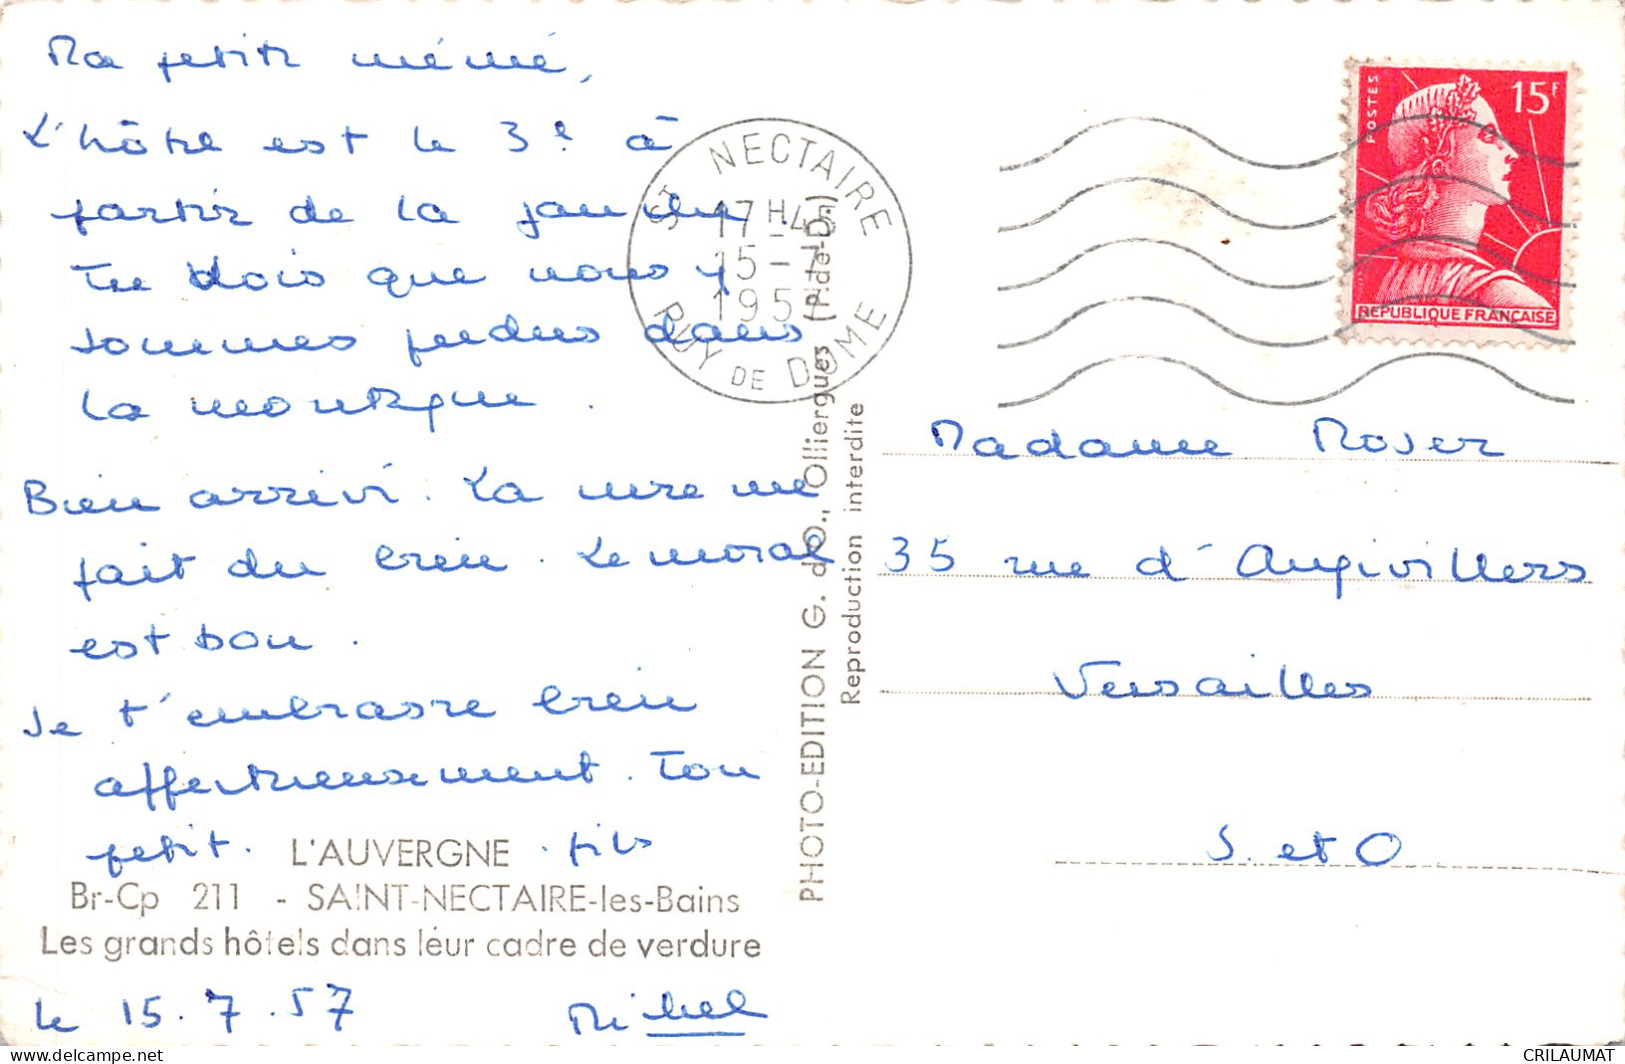 Ma petite mémé,
L'hôtel est le 3e à
partir de la gauche
Tu vois que nous y
sommes perdus dans
la montagne.
Bien arrivé. La cure me
fait du bien. Le moral
est bon.
Je t'embrasse bien
affectueusement. Ton
petit. fils
L'AUVERGNE
Br-Cp 211 - SAINT-NECTAIRE-les-Bains
Les grands hôtels dans leur cadre de verdure
le 15.7.57 Michel
PHOTO-EDITION G. d'O., Olliergues (P.-de-D.)
Reproduction interdite
ST NECTAIRE
17H45
15-7
1957
PUY DE DOME
POSTES
15F
REPUBLIQUE FRANÇAISE
Madame Moser
35 rue d'Angivillers
Versailles
S. et O
CRILAUMAT